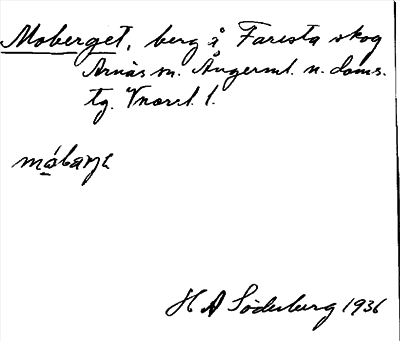 Moberget, berg å Faresta skog
Arnäs sn. Ångerml. n. doms.
tg. Vnorrl. l.
móbarɟɛ
H A Söderberg 1936